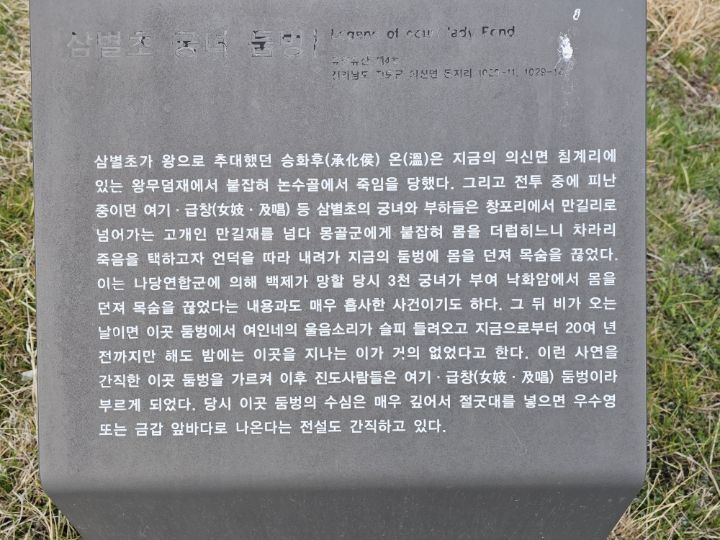 삼별초 궁녀 둠벙
Legend of court lady Pond
전라남도 진도군 의신면 돈지리 1029-11, 1029-12
삼별초가 왕으로 추대했던 승화후(承化侯) 온(溫)은 지금의 의신면 침계리에
있는 왕무덤재에서 붙잡혀 논수골에서 죽임을 당했다. 그리고 전투 중에 피난
중이던 여기·급창(女妓·及唱) 등 삼별초의 궁녀와 부하들은 창포리에서 만길리로
넘어가는 고개인 만길재를 넘다 몽골군에게 붙잡혀 몸을 더럽히느니 차라리
죽음을 택하고자 언덕을 따라 내려가 지금의 둠벙에 몸을 던져 목숨을 끊었다.
이는 나당연합군에 의해 백제가 망할 당시 3천 궁녀가 부여 낙화암에서 몸을
던져 목숨을 끊었다는 내용과도 매우 흡사한 사건이기도 하다. 그 뒤 비가 오는
날이면 이곳 둠벙에서 여인네의 울음소리가 슬피 들려오고 지금으로부터 20여 년
전까지만 해도 밤에는 이곳을 지나는 이가 거의 없었다고 한다. 이런 사연을
간직한 이곳 둠벙을 가르켜 이후 진도사람들은 여기·급창(女妓·及唱) 둠벙이라
부르게 되었다. 당시 이곳 둠벙의 수심은 매우 깊어서 절굿대를 넣으면 우수영
또는 금갑 앞바다로 나온다는 전설도 간직하고 있다.